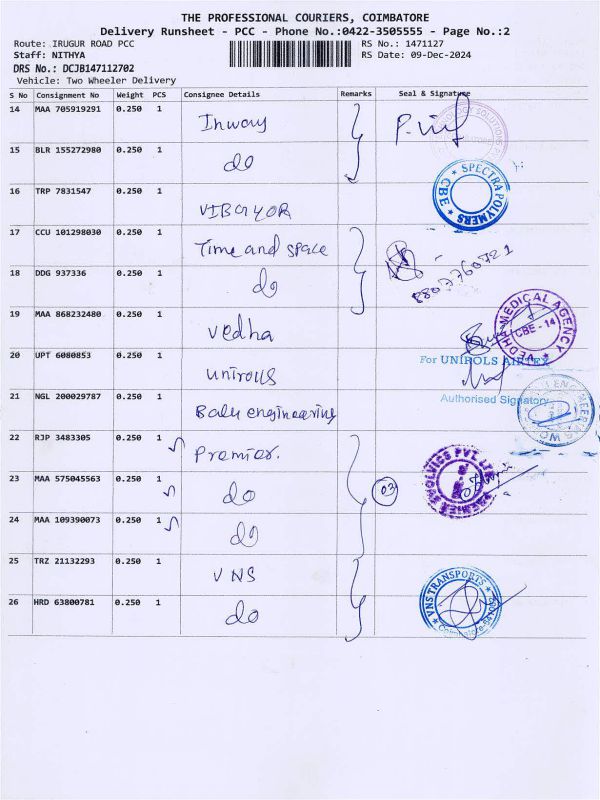 THE PROFESSIONAL COURIERS, COIMBATORE
Delivery Runsheet - PCC - Phone No.:0422-3505555 - Page No.:2
Route: IRUGUR ROAD PCC RS No.: 1471127
Staff: NITHYA RS Date: 09-Dec-2024
DRS No.: DCJB147112702
Vehicle: Two Wheeler Delivery
S No Consignment No Weight PCS Consignee Details Remarks Seal & Signature
14 MAA 705919291 0.250 1
Inway
15 BLR 155272980 0.250 1
do
SPECTRA POLYMERS CBE
16 TRP 7831547 0.250 1
VIBGYOR
17 CCU 101298030 0.250 1
Time and space
18 DDG 937336 0.250 1
do
8807760721
19 MAA 868232480 0.250 1
vedha
VEDHA MEDICAL AGENCY CBE - 14
20 UPT 6080853 0.250 1
unirolls
For UNIROLS AIRTEX
Authorised Signatory
21 NGL 200029787 0.250 1
Balu engineering
22 RJP 3483305 0.250 1
Premier.
23 MAA 575045563 0.250 1
do
03
24 MAA 109390073 0.250 1
do
25 TRZ 21132293 0.250 1
VNS
26 HRD 63800781 0.250 1
do
VNS TRANSPORTS